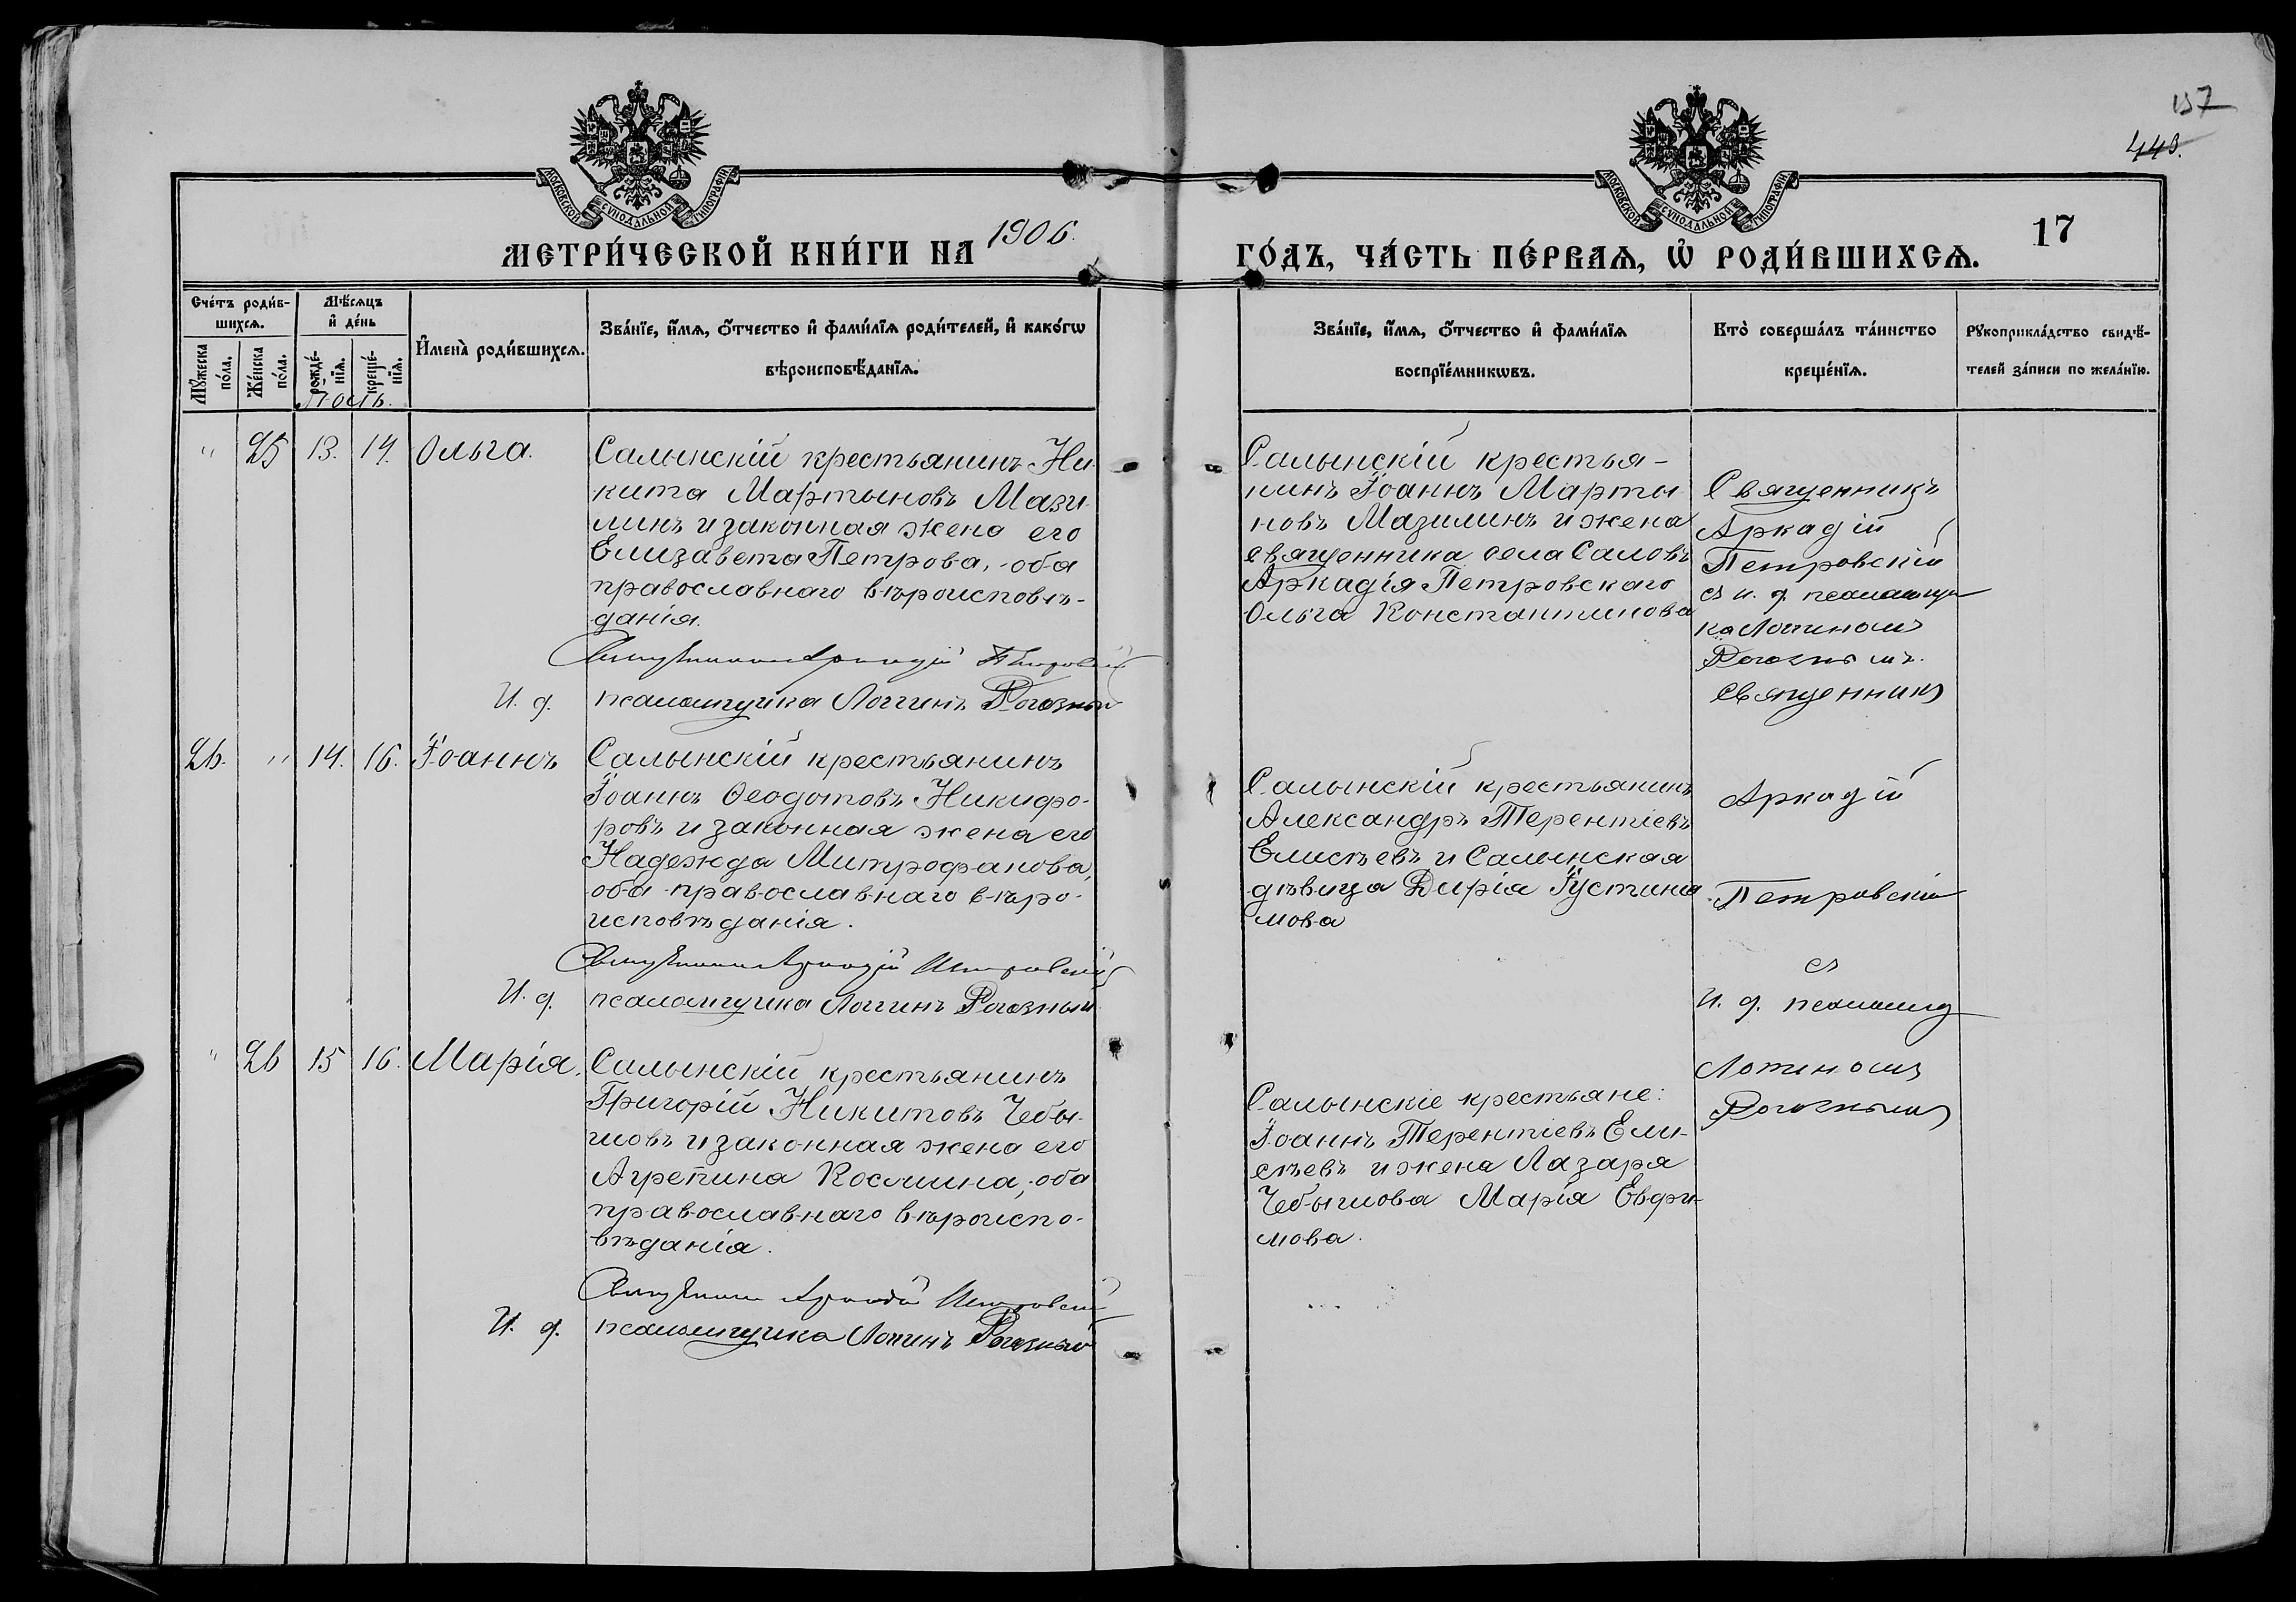 157
448.
МОСКОВСКОЙ СѴНОДАЛЬНОЙ ТИПОГРАФІИ
МОСКОВСКОЙ СѴНОДАЛЬНОЙ ТИПОГРАФІИ
МЕТРИ́ЧЕСКОЙ КНИ́ГИ НА 1906.
ГО́ДЪ, ЧА́СТЬ ПЕ́РВАѦ, Ѡ҆ РОДИ́ВШИХСѦ.
17
Сче́тъ роди́в-
шихсѧ.
Мꙋ́жеска
по́ла.
Же́нска
по́ла.
Мѣ́сѧцъ
и҆ де́нь
рожде́-
нїѧ.
креще́-
нїѧ.
И҆мена̀ роди́вшихсѧ.
Зва́нїе, и҆́мѧ, ѻ҆́тчество и҆ фами́лїѧ роди́телей, и҆ како́гѡ
вѣроисповѣ́данїѧ.
Зва́нїе, и҆́мѧ, ѻ҆́тчество и҆ фами́лїѧ
воспрїе́мникѡвъ.
Кто̀ соверша́лъ та́инство
креще́нїѧ.
Рꙋкоприкла́дство свидѣ́-
телей за́писи по жела́нїю.
" 25 13. 14. Ольга.
Салынскій крестьянинъ Ни-
кита Мартыновъ Мази-
линъ и законная жена его
Елизавета Петрова, оба
православнаго вѣроисповѣ-
данія.
Священникъ Аркадій Петровскій
И. д. псаломщика Логгинъ Рогозный
Салынскій крестья-
нинъ Іоаннъ Марты-
новъ Мазилинъ и жена
священника села Саловъ
Аркадія Петровскаго
Ольга Константинова
Священникъ
Аркадій
Петровскій
съ и. д. псаломщи
ка Логгиномъ
Рогознымъ.
Священникъ
26. " 14. 16. Іоаннъ
Салынскій крестьянинъ
Іоаннъ Ѳеодотовъ Никифо-
ровъ и законная жена его
Надежда Митрофанова,
оба православнаго вѣро-
исповѣданія.
Священникъ Аркадій Петровскій
И. д. псаломщика Логгинъ Рогозный
Салынскій крестьянинъ
Александръ Терентіевъ
Елисѣевъ и Салынская
дѣвица Дарія Іустина
мова
Аркадій
Петровскій
съ
и. д. псаломщ
Логгиномъ
Рогознымъ
" 26 15 16. Марія.
Салынскій крестьянинъ
Григорій Никитовъ Чебы-
шовъ и законная жена его
Агрепина Космина, оба
православнаго вѣроиспо-
вѣданія.
Священникъ Аркадій Петровскій
И. д. псаломщика Логгинъ Рогозный
Салынскіе крестьяне:
Іоаннъ Терентіевъ Ели-
сѣевъ и жена Лазаря
Чебышова Марія Евфи-
мова.